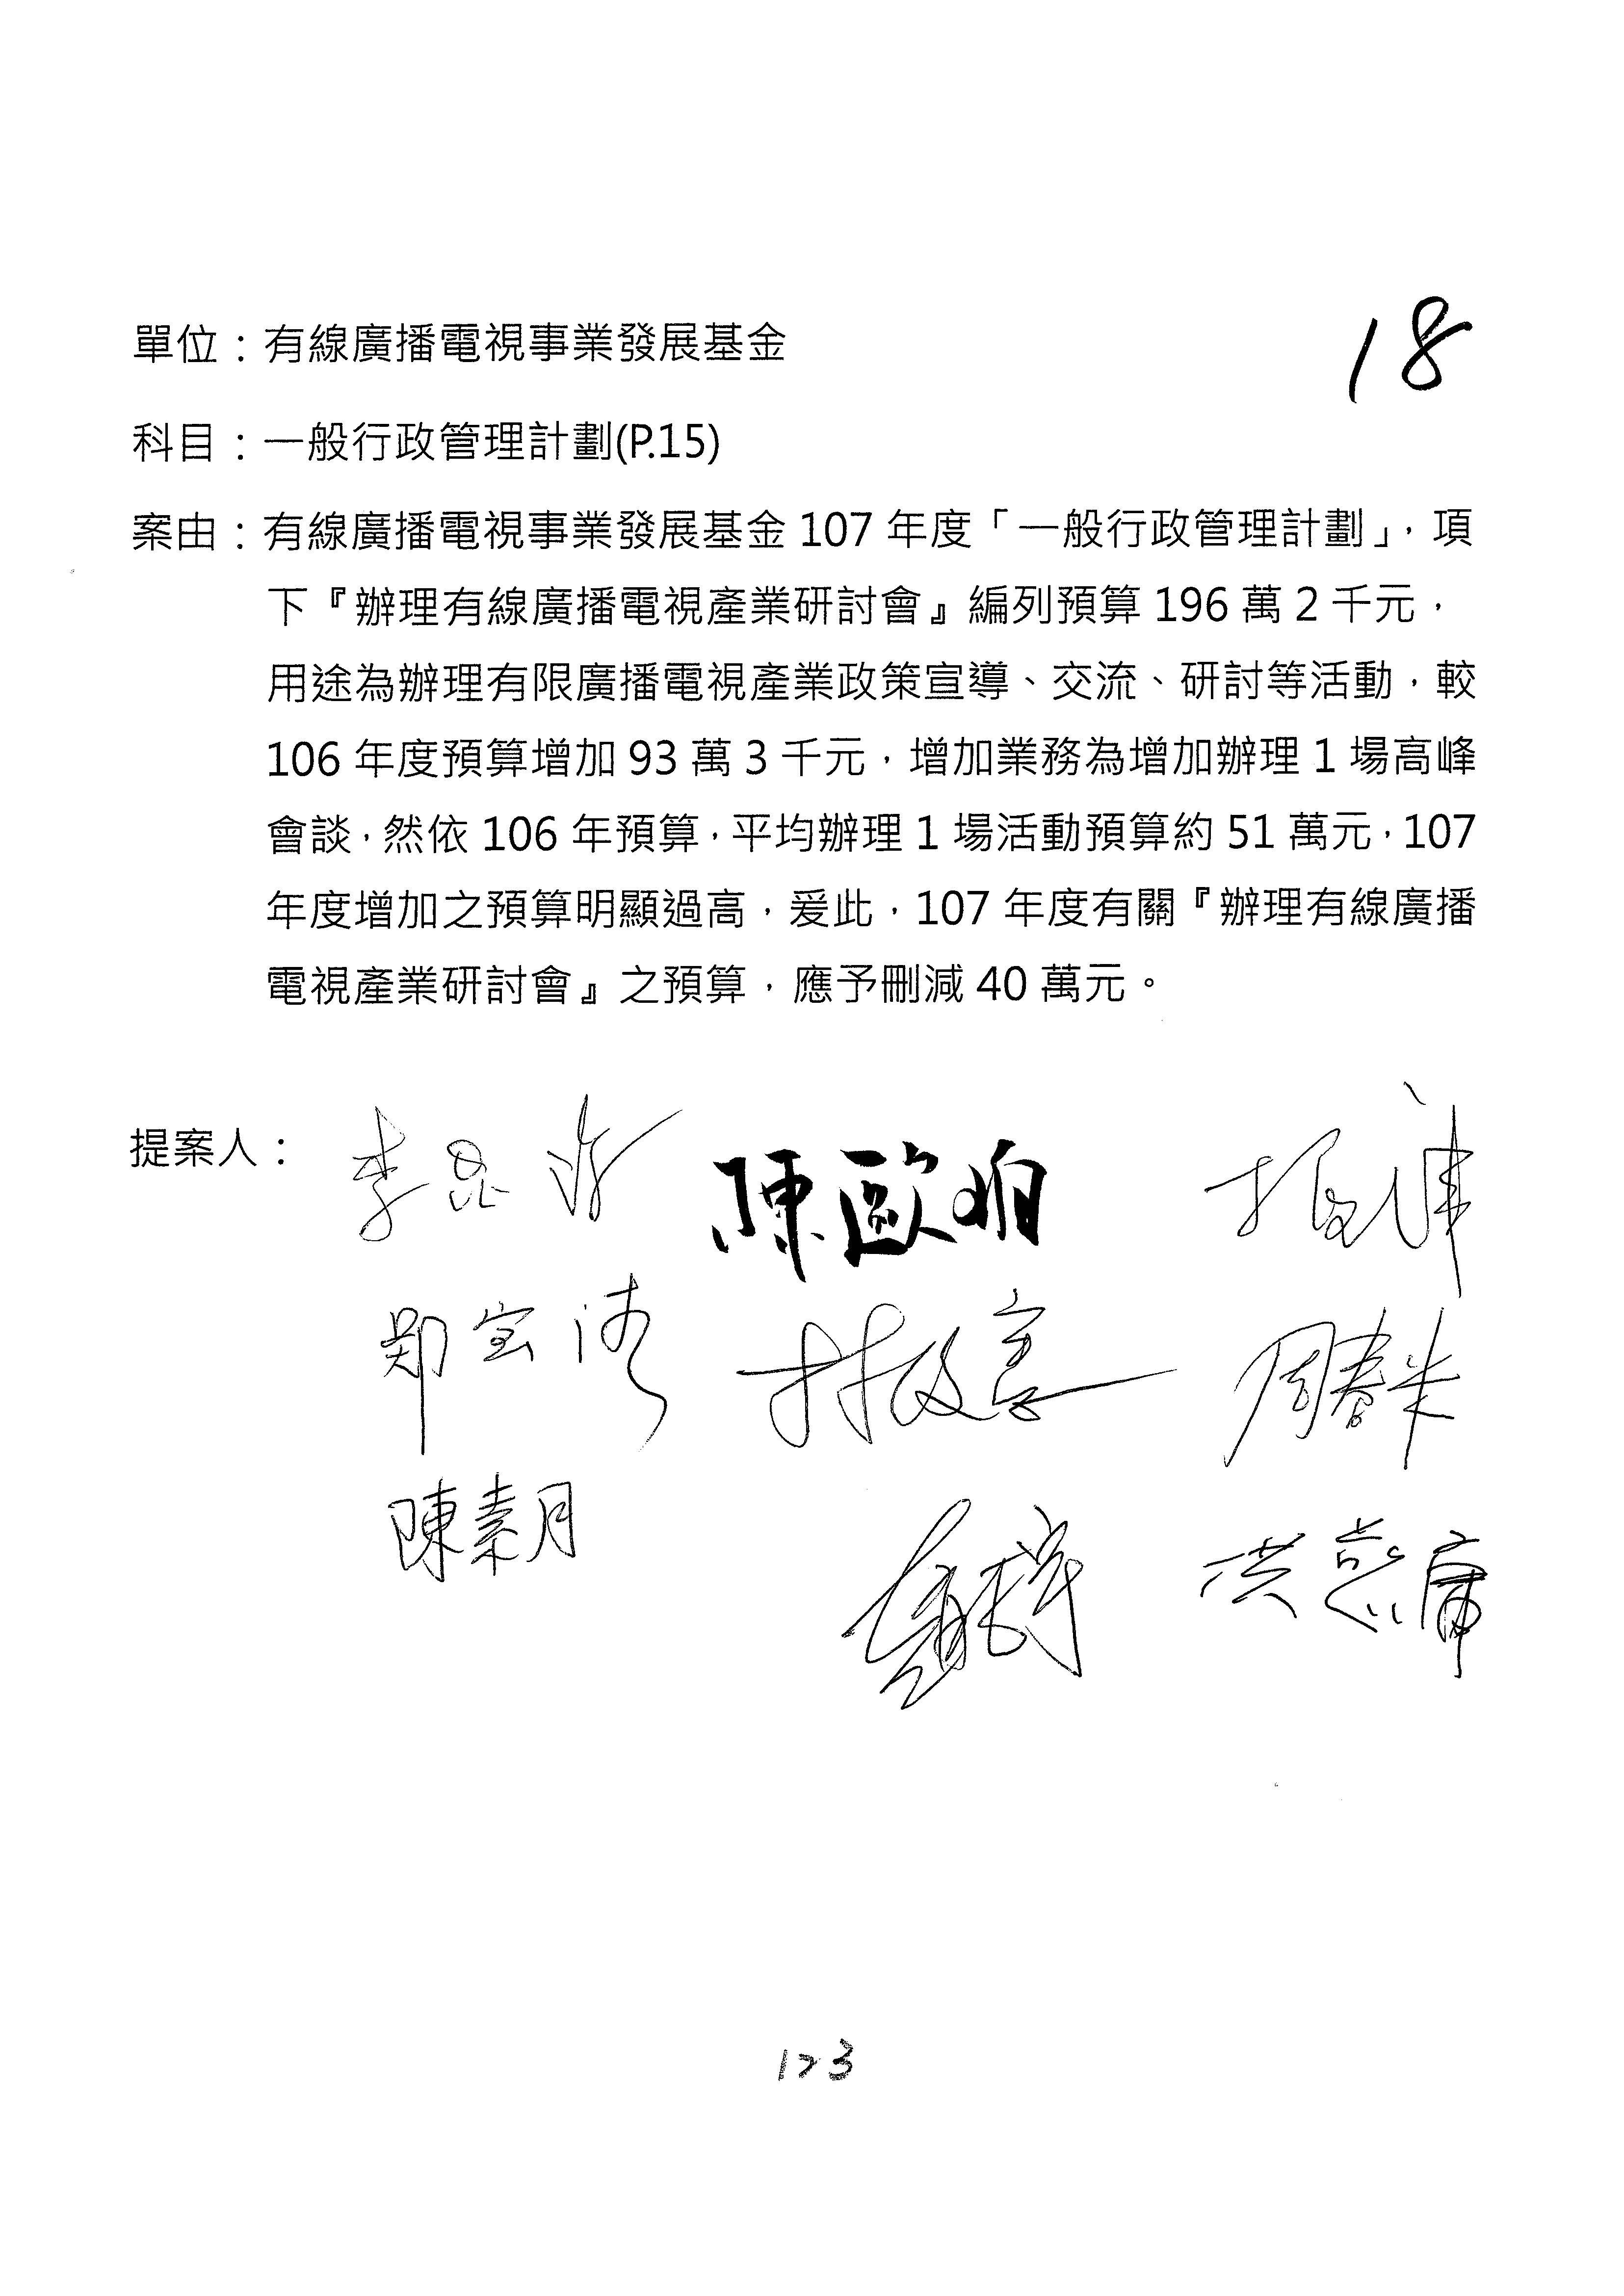 18
單位：有線廣播電視事業發展基金
科目：一般行政管理計劃(P.15)
案由：有線廣播電視事業發展基金 107 年度「一般行政管理計劃」，項
下『辦理有線廣播電視產業研討會』編列預算 196 萬 2 千元，
用途為辦理有限廣播電視產業政策宣導、交流、研討等活動，較
106 年度預算增加 93 萬 3 千元，增加業務為增加辦理 1 場高峰
會談，然依 106 年預算，平均辦理 1 場活動預算約 51 萬元，107
年度增加之預算明顯過高，爰此，107 年度有關『辦理有線廣播
電視產業研討會』之預算，應予刪減 40 萬元。
提案人： 李昆澤 陳歐珀
鄭寶清 林俊憲 周春米
陳素月 洪慈庸
173